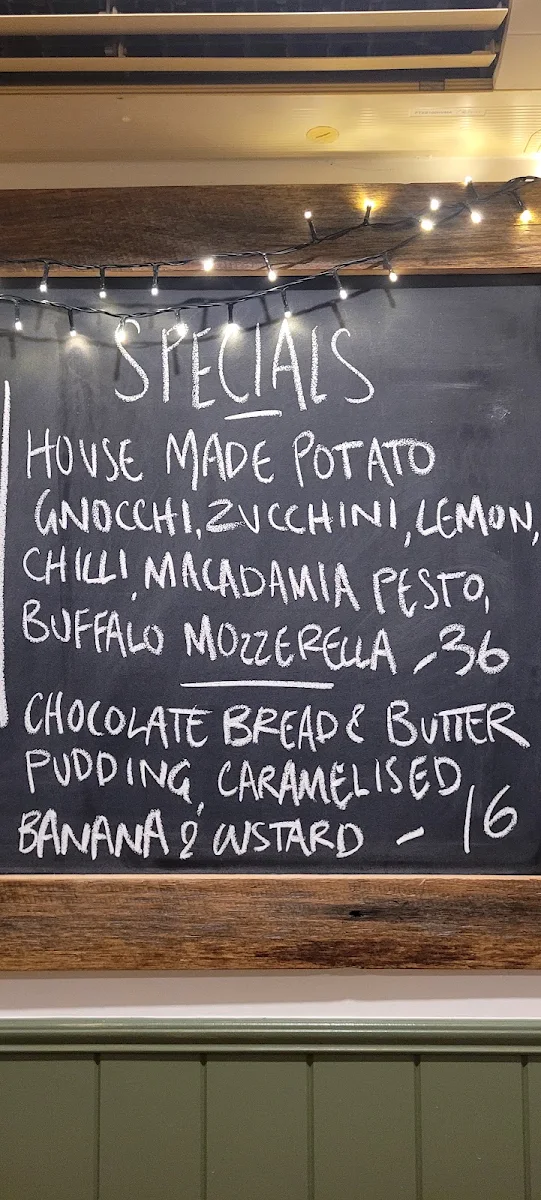 SPECIALS
HOUSE MADE POTATO
GNOCCHI, ZUCCHINI, LEMON,
CHILLI, MACADAMIA PESTO,
BUFFALO MOZZERELLA - 36
CHOCOLATE BREAD & BUTTER
PUDDING, CARAMELISED
BANANA & CUSTARD - 16